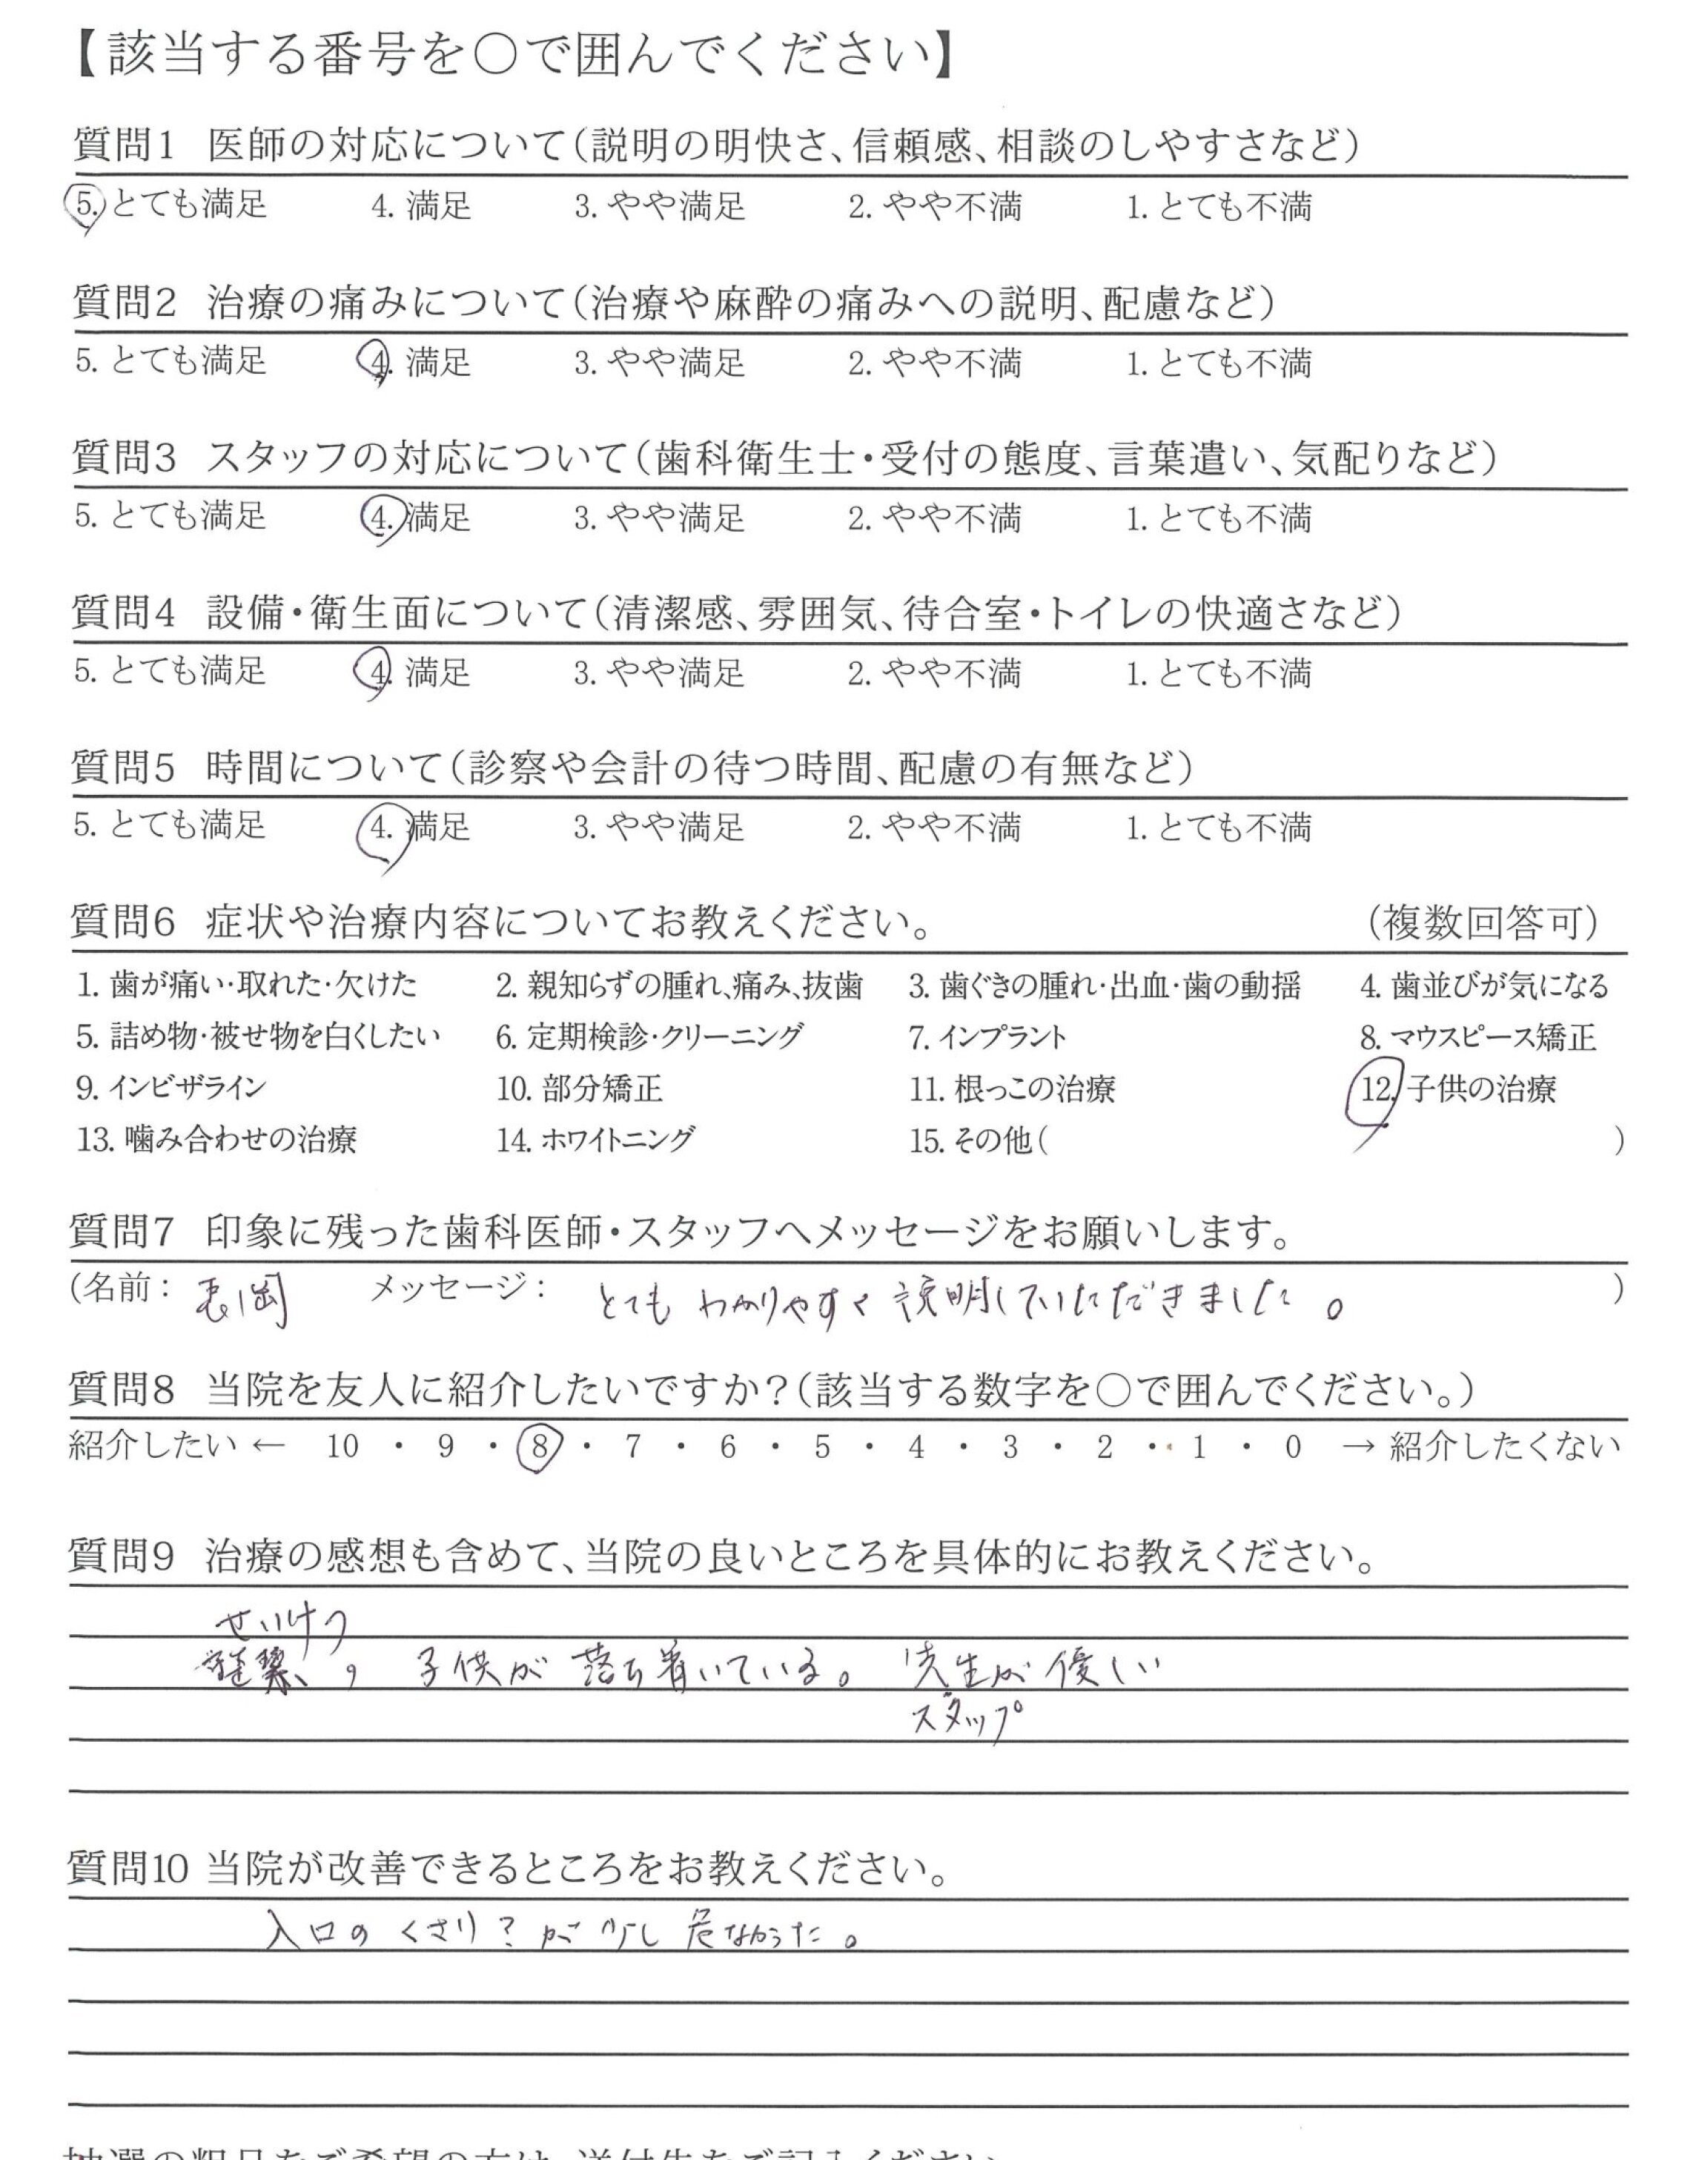 【該当する番号を○で囲んでください】
質問1 医師の対応について(説明の明快さ、信頼感、相談のしやすさなど)
5. とても満足 4. 満足 3. やや満足 2. やや不満 1. とても不満
質問2 治療の痛みについて(治療や麻酔の痛みへの説明、配慮など)
5. とても満足 4. 満足 3. やや満足 2. やや不満 1. とても不満
質問3 スタッフの対応について(歯科衛生士・受付の態度、言葉遣い、気配りなど)
5. とても満足 4. 満足 3. やや満足 2. やや不満 1. とても不満
質問4 設備・衛生面について(清潔感、雰囲気、待合室・トイレの快適さなど)
5. とても満足 4. 満足 3. やや満足 2. やや不満 1. とても不満
質問5 時間について(診察や会計の待つ時間、配慮の有無など)
5. とても満足 4. 満足 3. やや満足 2. やや不満 1. とても不満
質問6 症状や治療内容についてお教えください。 (複数回答可)
1. 歯が痛い・取れた・欠けた 2. 親知らずの腫れ、痛み、抜歯 3. 歯ぐきの腫れ・出血・歯の動揺 4. 歯並びが気になる
5. 詰め物・被せ物を白くしたい 6. 定期検診・クリーニング 7. インプラント 8. マウスピース矯正
9. インビザライン 10. 部分矯正 11. 根っこの治療 12. 子供の治療
13. 噛み合わせの治療 14. ホワイトニング 15. その他( )
質問7 印象に残った歯科医師・スタッフへメッセージをお願いします。
(名前: 岡 メッセージ: とても わかりやすく 説明していただきました。 )
質問8 当院を友人に紹介したいですか?(該当する数字を○で囲んでください。)
紹介したい ← 10 ・ 9 ・ 8 ・ 7 ・ 6 ・ 5 ・ 4 ・ 3 ・ 2 ・ 1 ・ 0 → 紹介したくない
質問9 治療の感想も含めて、当院の良いところを具体的にお教えください。
せいけつ
, 子供が 落ち着いている。 先生が 優しい
スタップ
質問10 当院が改善できるところをお教えください。
入口の くさり? が 少し 危なかった。
抽選の粗品をご希望の方は、送付先をご記入ください